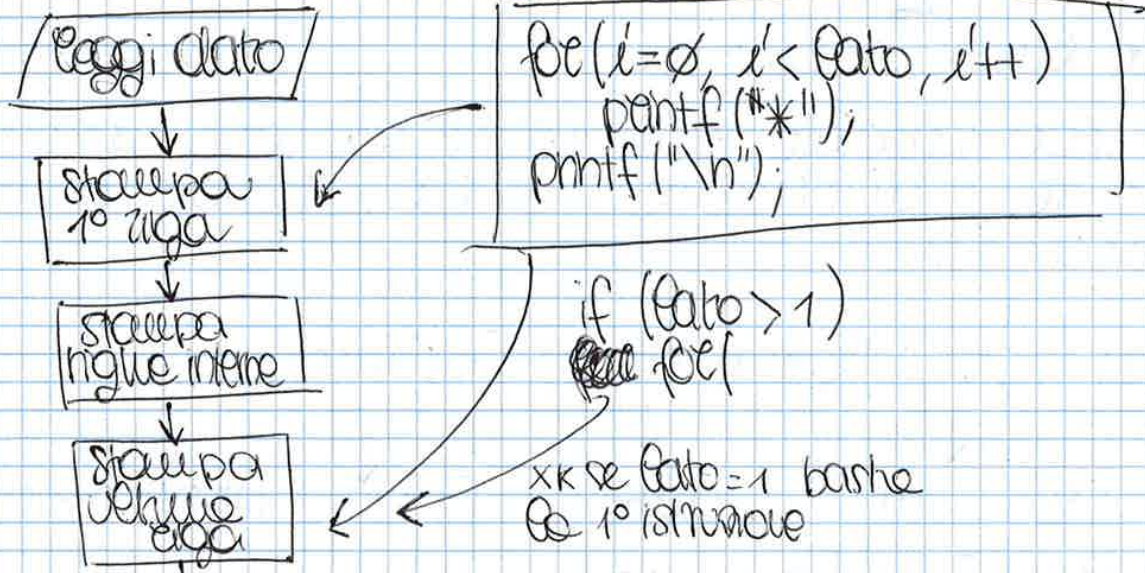 leggi dato
stampa
1° riga
stampa
righe interne
stampa
ultima
riga
for(i=0, i<lato, i++)
printf("*");
printf("\n");
if (lato>1)
for(
xk se lato=1 basta
la 1° istruzione